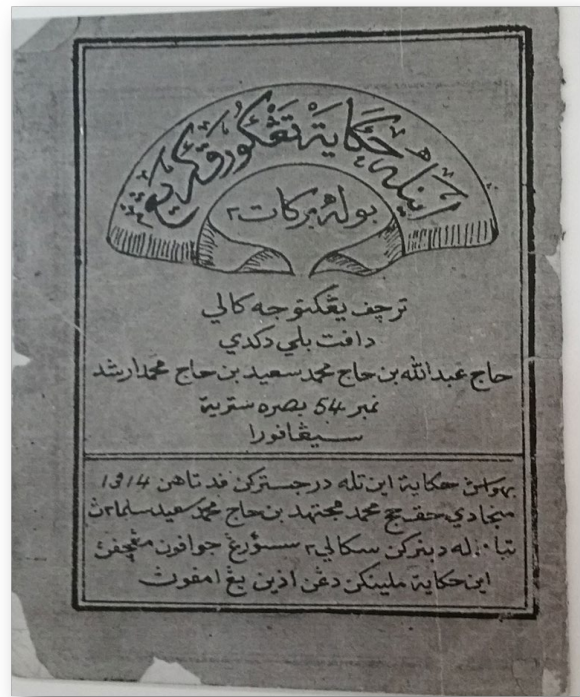 اينله حكاية تڠكورق كريڠ
بوله بركات٢
ترچف يڠكتوجه كالي
دافت بلي دكدي
حاج عبدالله بن حاج محمد سعيد بن حاج محمد ارشد
نمبر 54 بصره ستريت
سيڠافورا
بهواسڽ حكاية اين تله درجسترکن فد تاهن 1914
منجادي حقڽ حج محمد مجتهد بن حاج محمد سعيد سلما٢ڽ
تياد له دبنركن سكالي٢ سسؤرڠ جوافون مڠچفڽ
اين حكاية ملينكن دڠن اذين يڠ امفوڽ